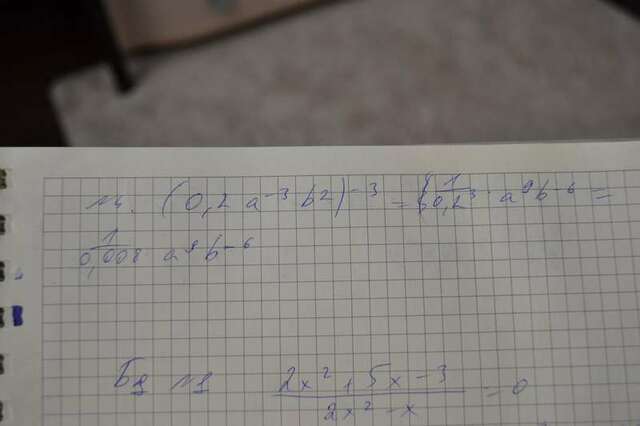 №4. (0,2 a⁻³ b²)⁻³ = 1/0,2³ · a⁹b⁻⁶ =
1/0,008 a⁹b⁻⁶
(2x² + 5x - 3)/(2x² - x) = 0